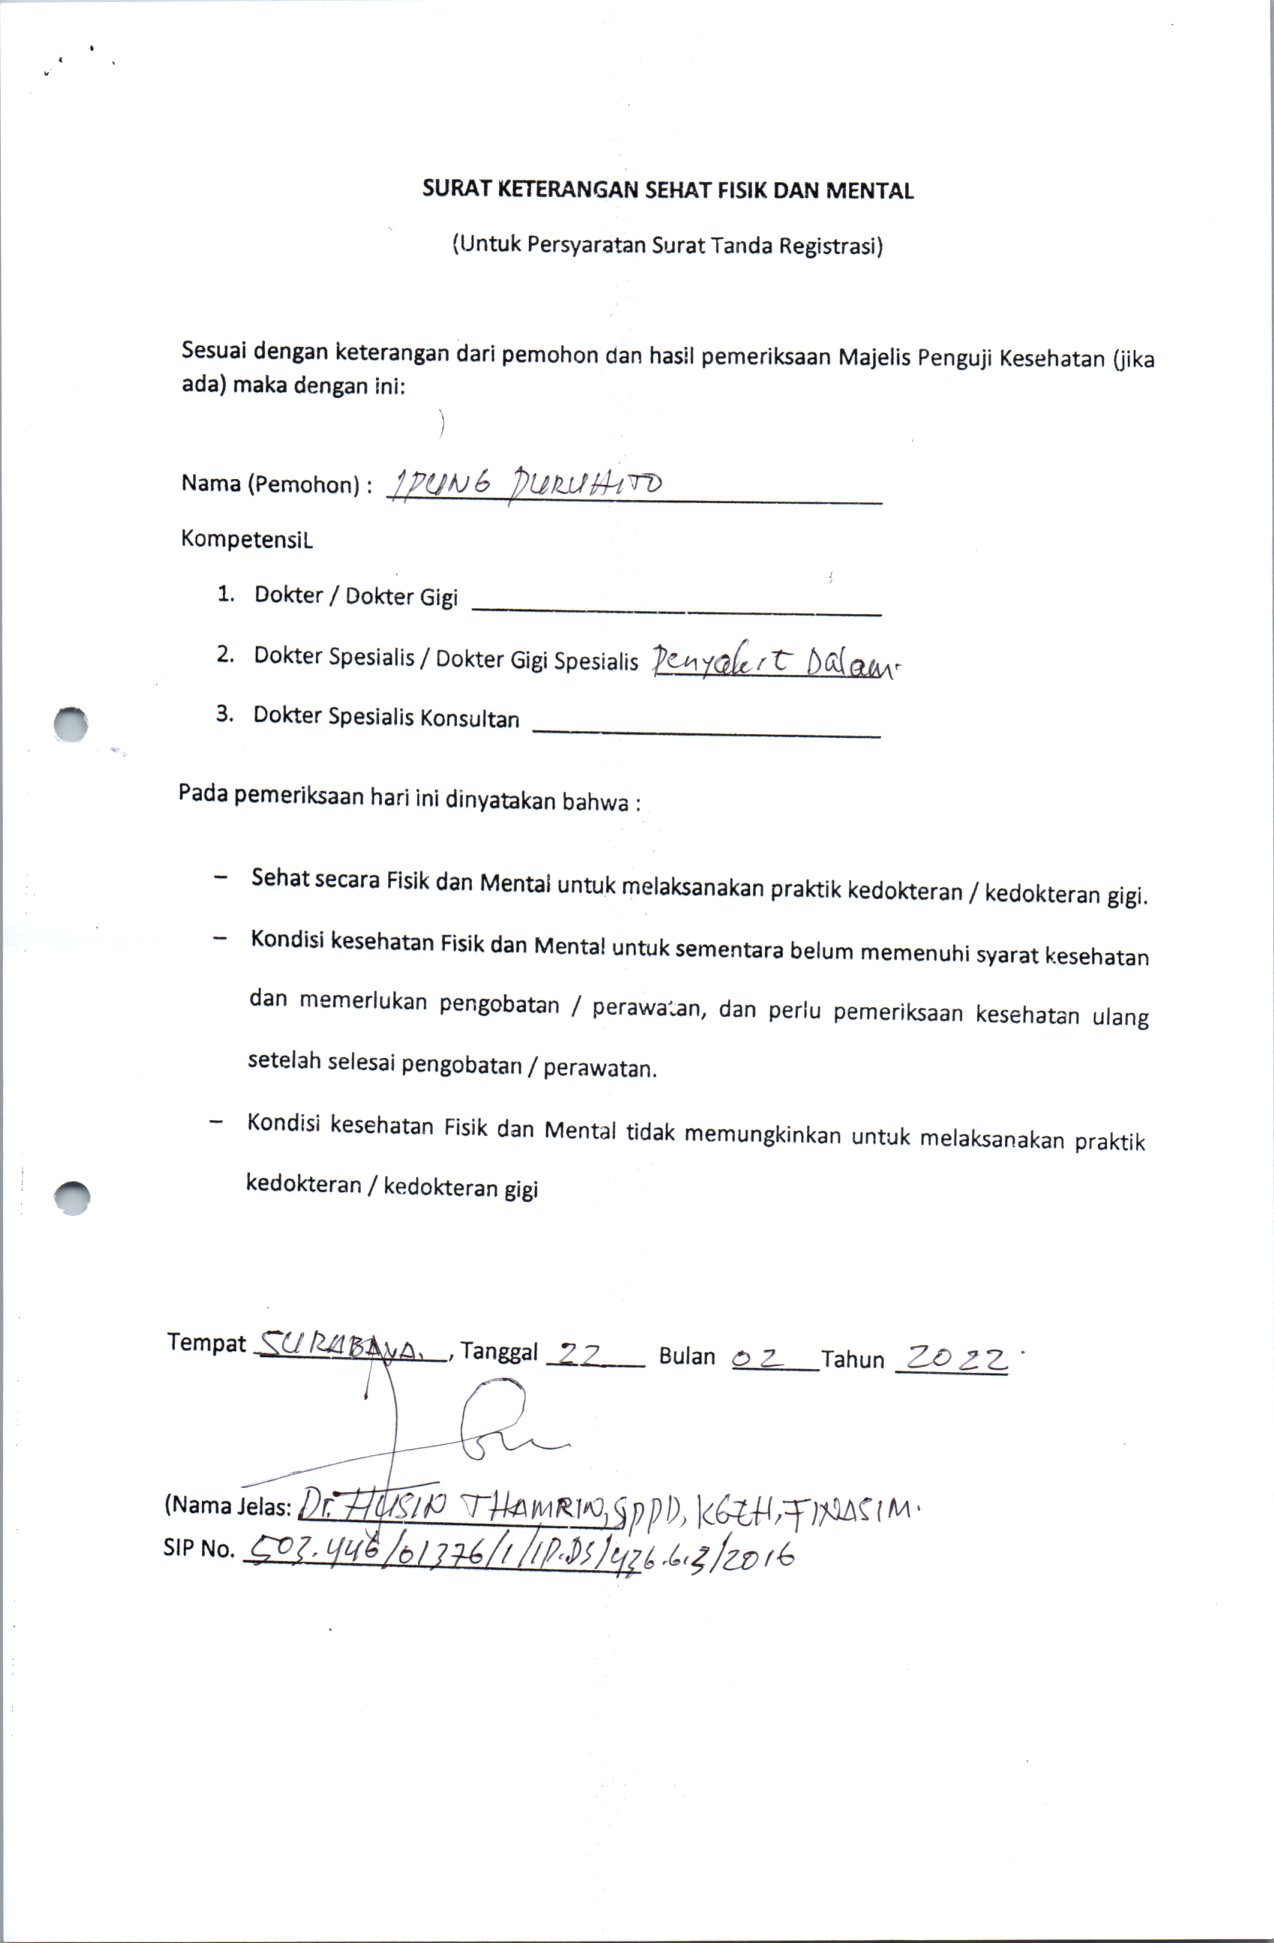 SURAT KETERANGAN SEHAT FISIK DAN MENTAL
(Untuk Persyaratan Surat Tanda Registrasi)
Sesuai dengan keterangan dari pemohon dan hasil pemeriksaan Majelis Penguji Kesehatan (jika
ada) maka dengan ini:
Nama (Pemohon) : IPUNG PURUHITO
KompetensiL
1. Dokter / Dokter Gigi
2. Dokter Spesialis / Dokter Gigi Spesialis Penyakit Dalam.
3. Dokter Spesialis Konsultan
Pada pemeriksaan hari ini dinyatakan bahwa :
– Sehat secara Fisik dan Mental untuk melaksanakan praktik kedokteran / kedokteran gigi.
– Kondisi kesehatan Fisik dan Mental untuk sementara belum memenuhi syarat kesehatan
dan memerlukan pengobatan / perawatan, dan perlu pemeriksaan kesehatan ulang
setelah selesai pengobatan / perawatan.
– Kondisi kesehatan Fisik dan Mental tidak memungkinkan untuk melaksanakan praktik
kedokteran / kedokteran gigi
Tempat SURABAYA. , Tanggal 22 Bulan 02 Tahun 2022
(Nama Jelas: Dr. HUSIN THAMRIN, SPPD, KGEH, FINASIM.
SIP No. 503.446/01376/1/IP.DS/436.6.3/2016